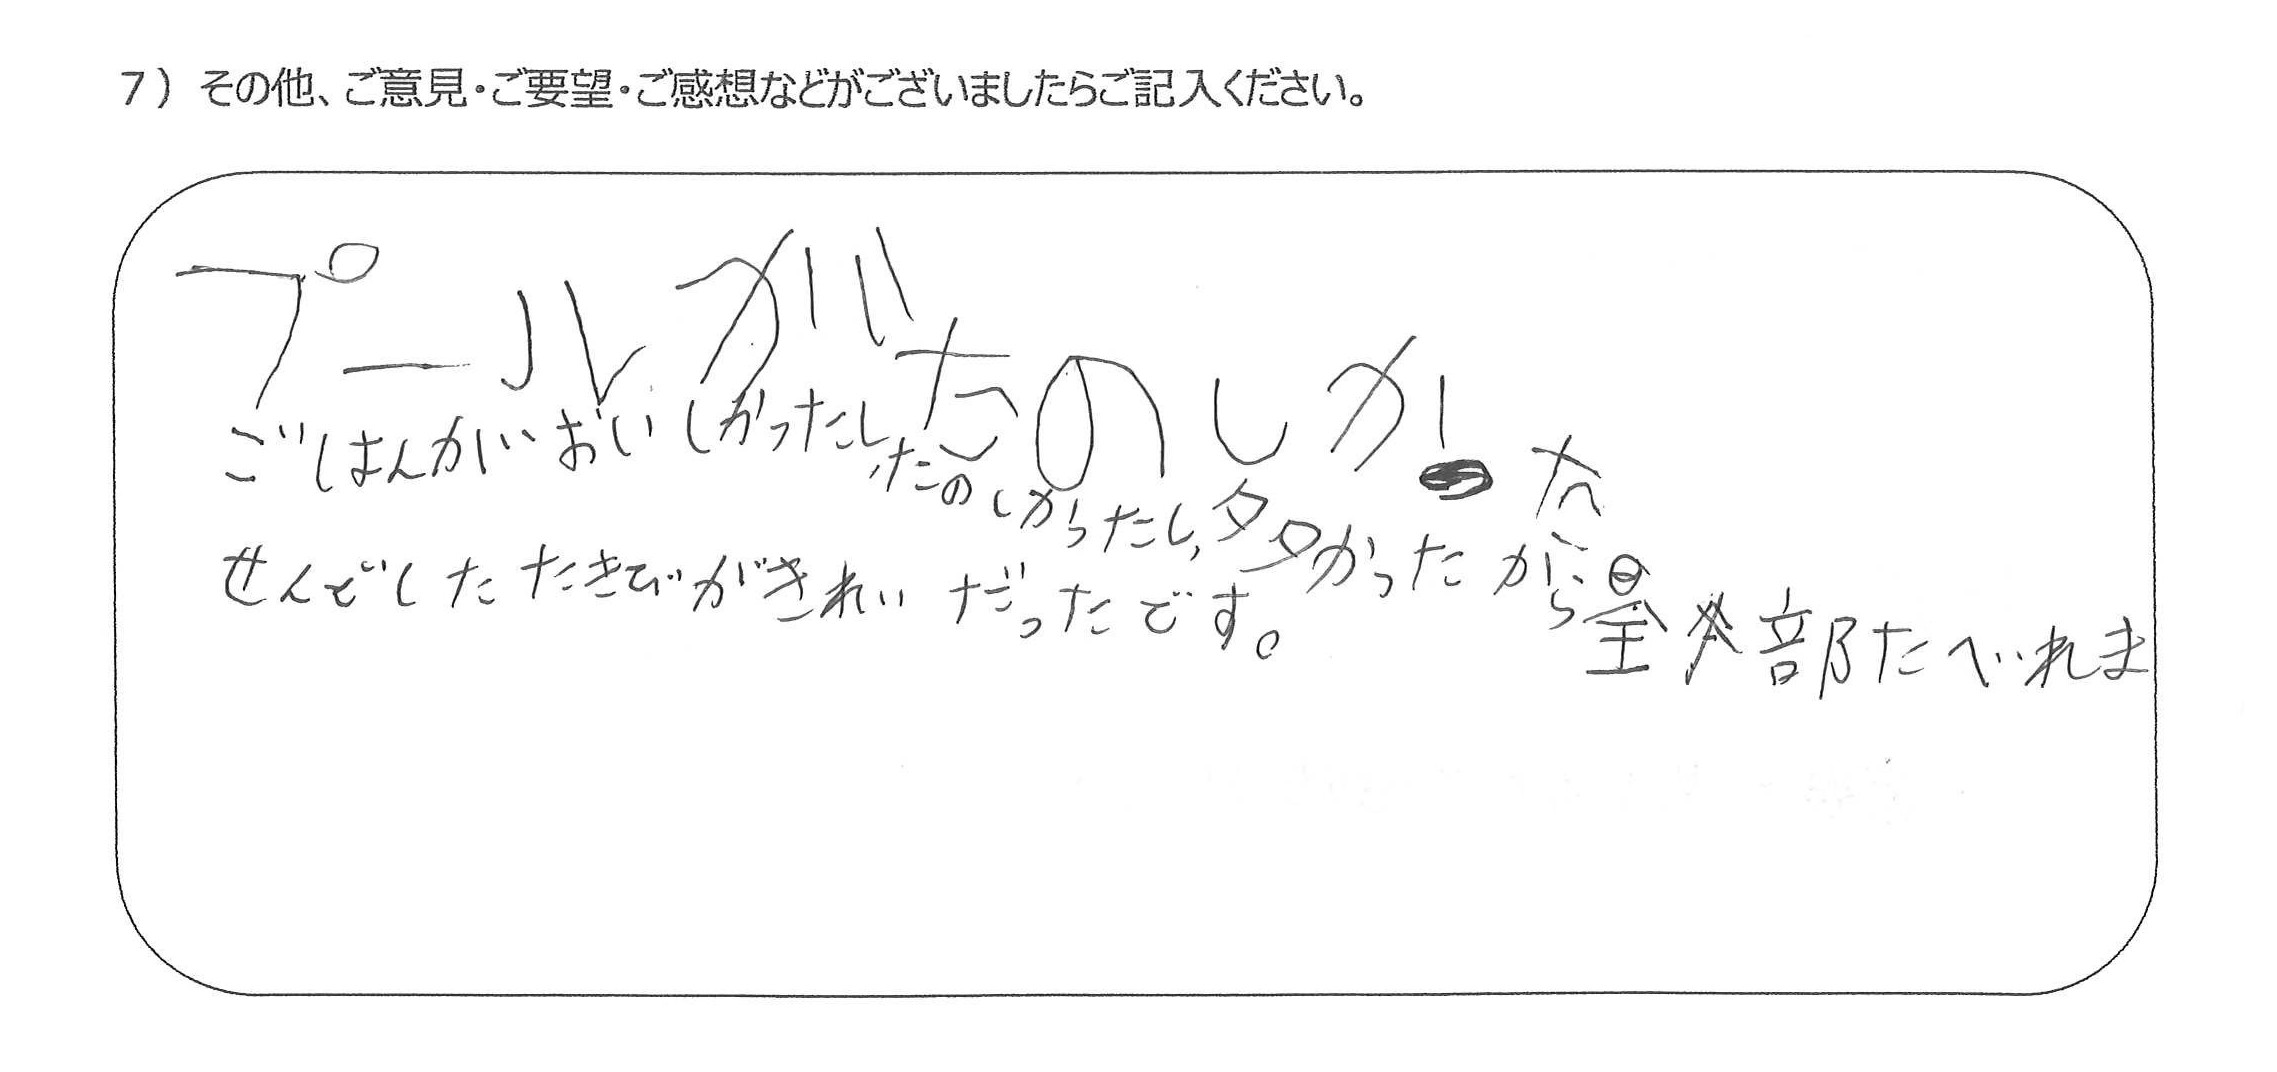 7）その他、ご意見・ご要望・ご感想などがございましたらご記入ください。
プールがたのしかった
ごはんがおいしかったし、たのしかったし、多かったから全部たべれま
せんでしたたきびがきれいだったです。